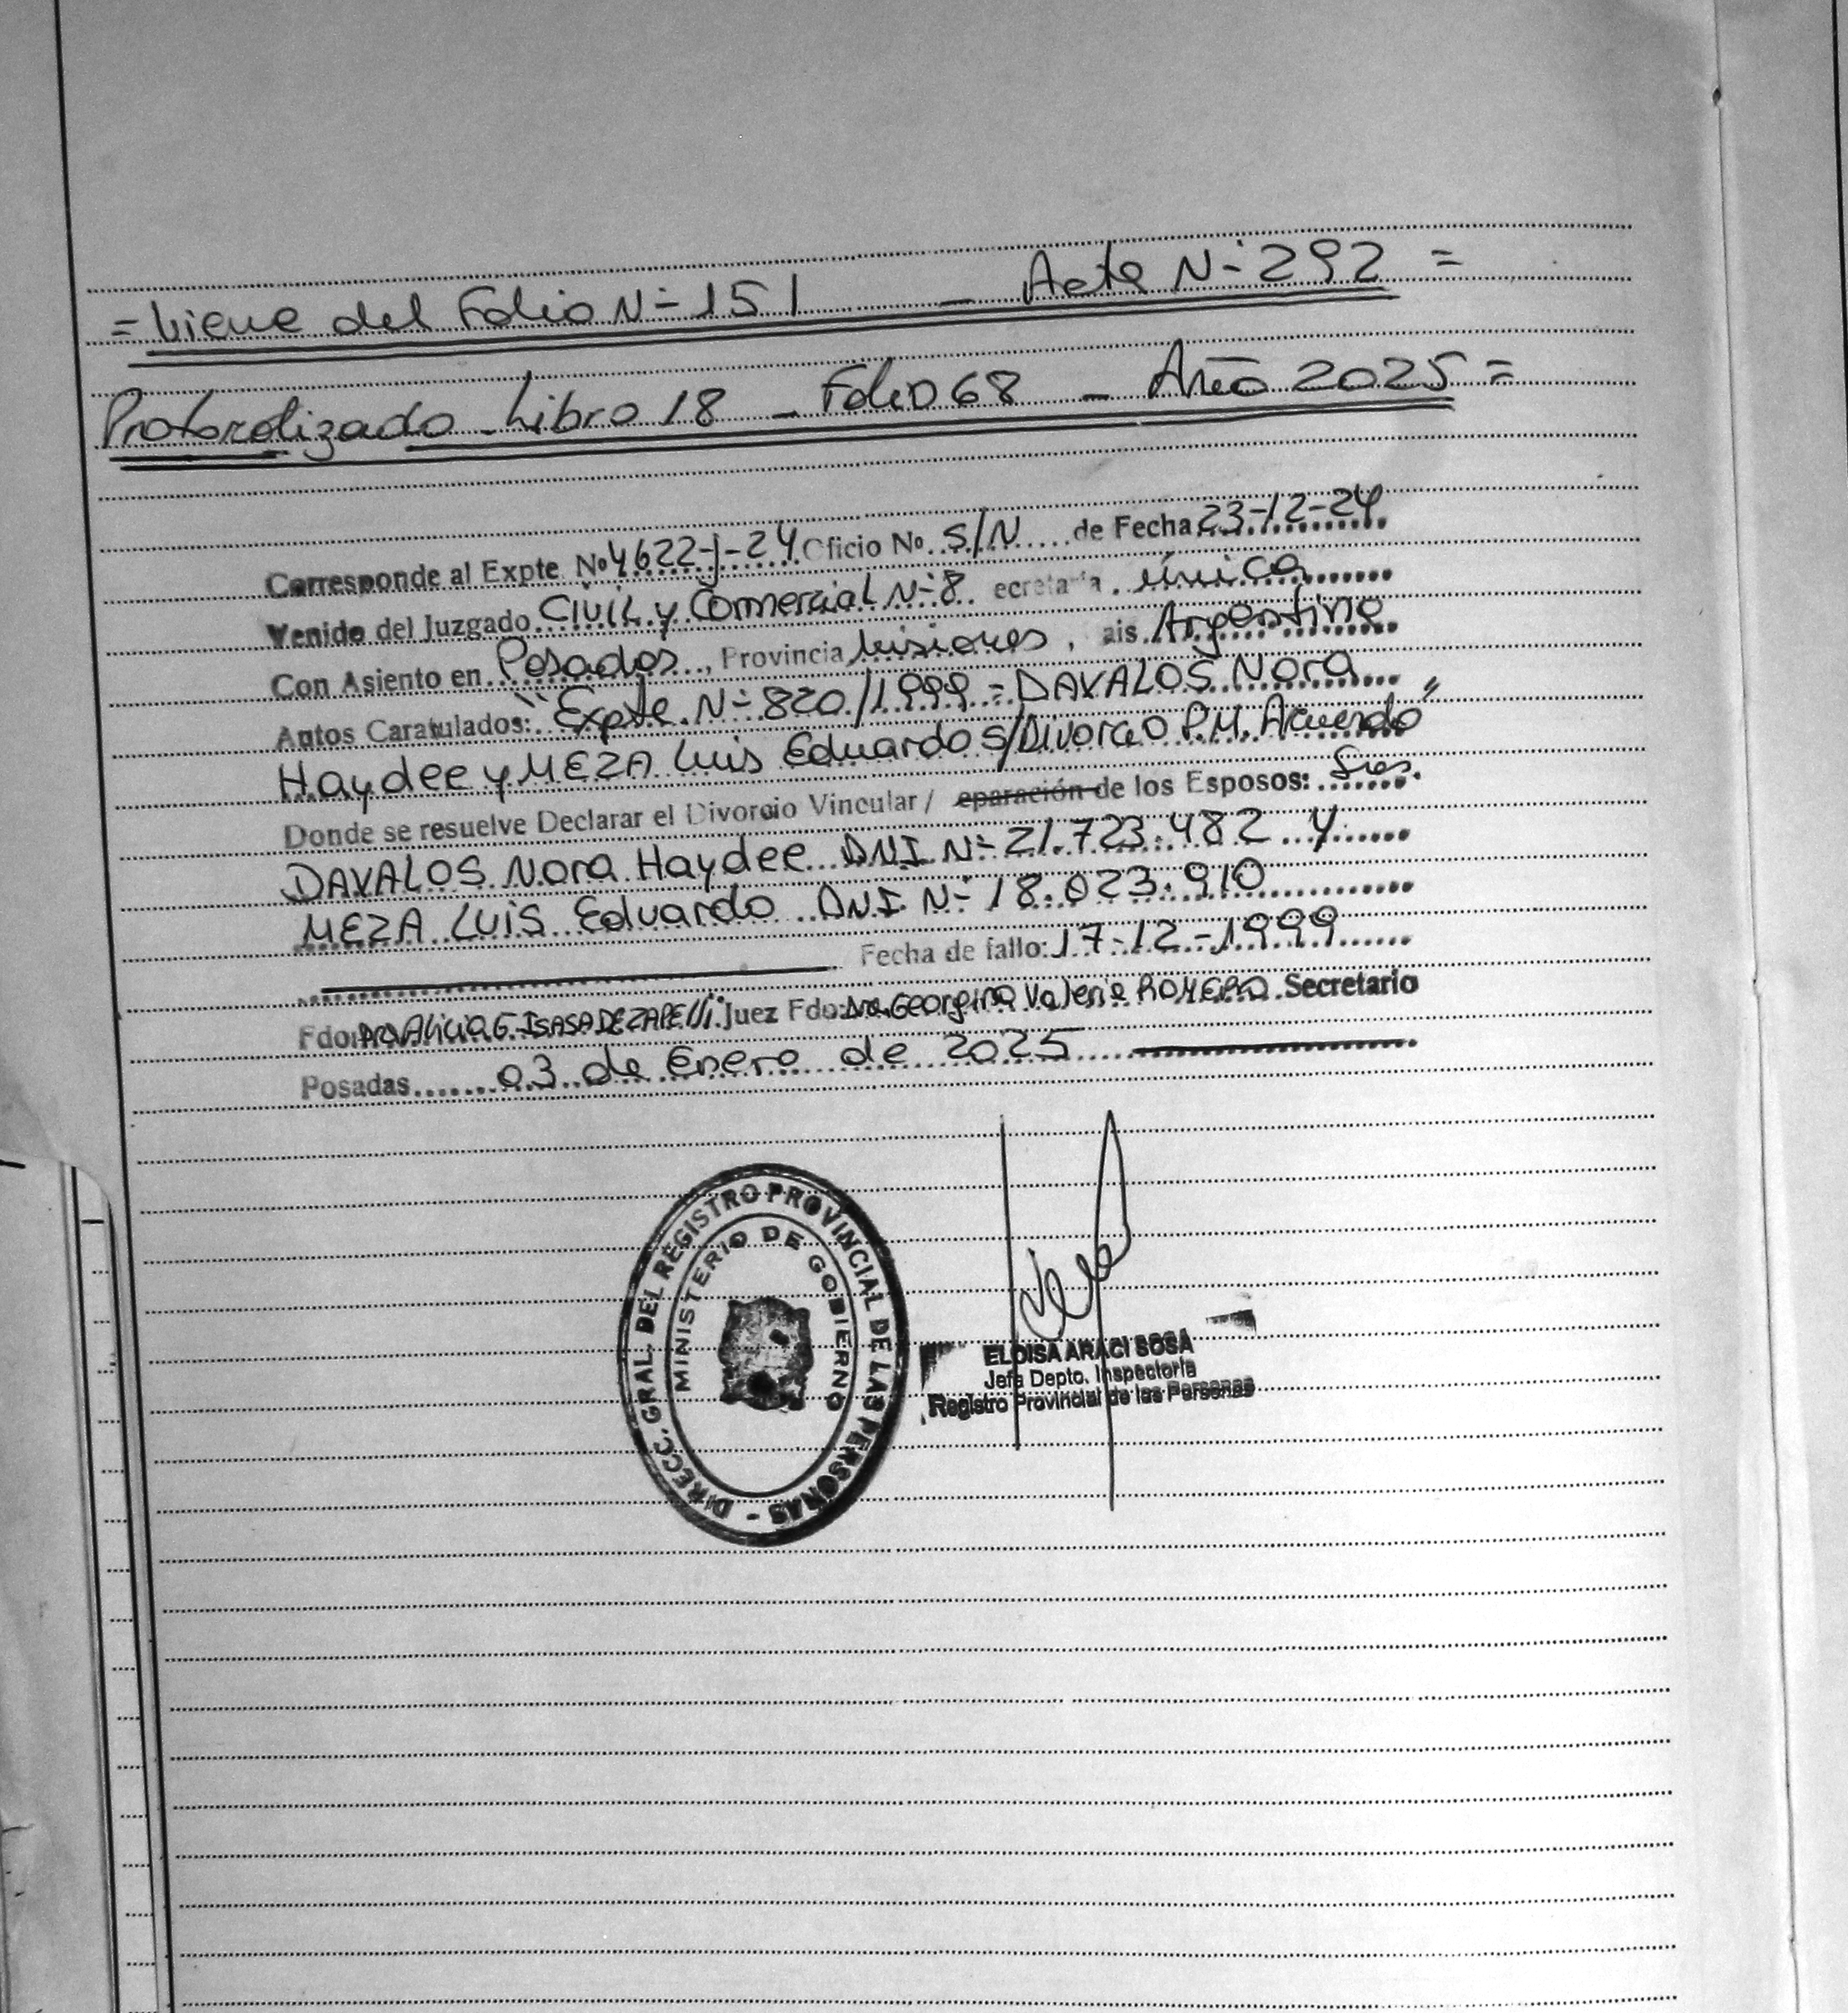 = Viene del Folio N° 151 - Acta N° 292 =
Protocolizado Libro 18 - Folio 68 - Año 2025 =
Corresponde al Expte Nº 4622-J-24 Oficio Nº S/N de Fecha 23-12-24
Venido del Juzgado Civil y Comercial N° 8 ecretaría única
Con Asiento en Posadas, Provincia Misiones, ais Argentina
Autos Caratulados: "Expte. N° 820/1999 = DAVALOS Nora
Haydee y MEZA Luis Eduardo s/Divorcio P.M. Acuerdo"
Donde se resuelve Declarar el Divorcio Vincular / eparación de los Esposos: Sres.
DAVALOS Nora Haydee DNI N° 21.723.482 y
MEZA LUIS Eduardo DNI N° 18.023.910
Fecha de fallo: 17-12-1999
Fdo: Dra Alicia G. ISASA DE ZAPELLI Juez Fdo: Dra. Georgina Valeria ROMERO Secretario
Posadas 03 de Enero de 2025
DIRECC. GRAL. DEL REGISTRO PROVINCIAL DE LAS PERSONAS -
MINISTERIO DE GOBIERNO
ELOISA ARACI SOSA
Jefa Depto. Inspectoría
Registro Provincial de las Personas